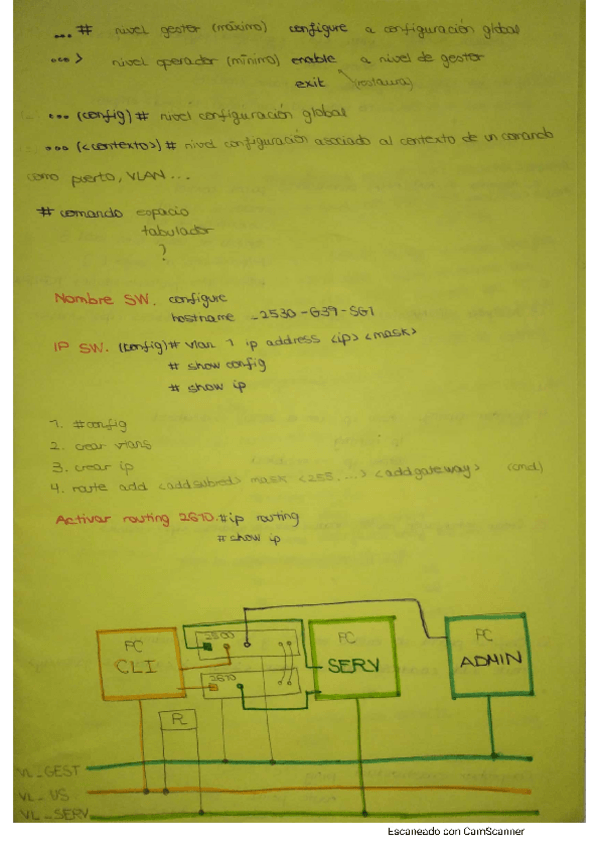 ...# nivel gestor (máximo) configure a configuración global
...> nivel operador (mínimo) enable a nivel de gestor
exit (restaura)
...(config)# nivel configuración global
...(<contexto>)# nivel configuración asociado al contexto de un comando
como puerto, VLAN...
# comando espacio
tabulador
?
Nombre SW. configure
hostname _2530-G39-SG1
IP SW. (config)# vlan 1 ip address <ip> <mask>
# show config
# show ip
1. #config
2. crear vlans
3. crear ip
4. route add <addsubred> mask <255....> <addgateway> (cmd)
Activar routing 2610. #ip routing
# show ip
PC
CLI
2500
2610
PC
SERV
PC
ADMIN
R
VL_GEST
VL_US
VL_SERV
Escaneado con CamScanner